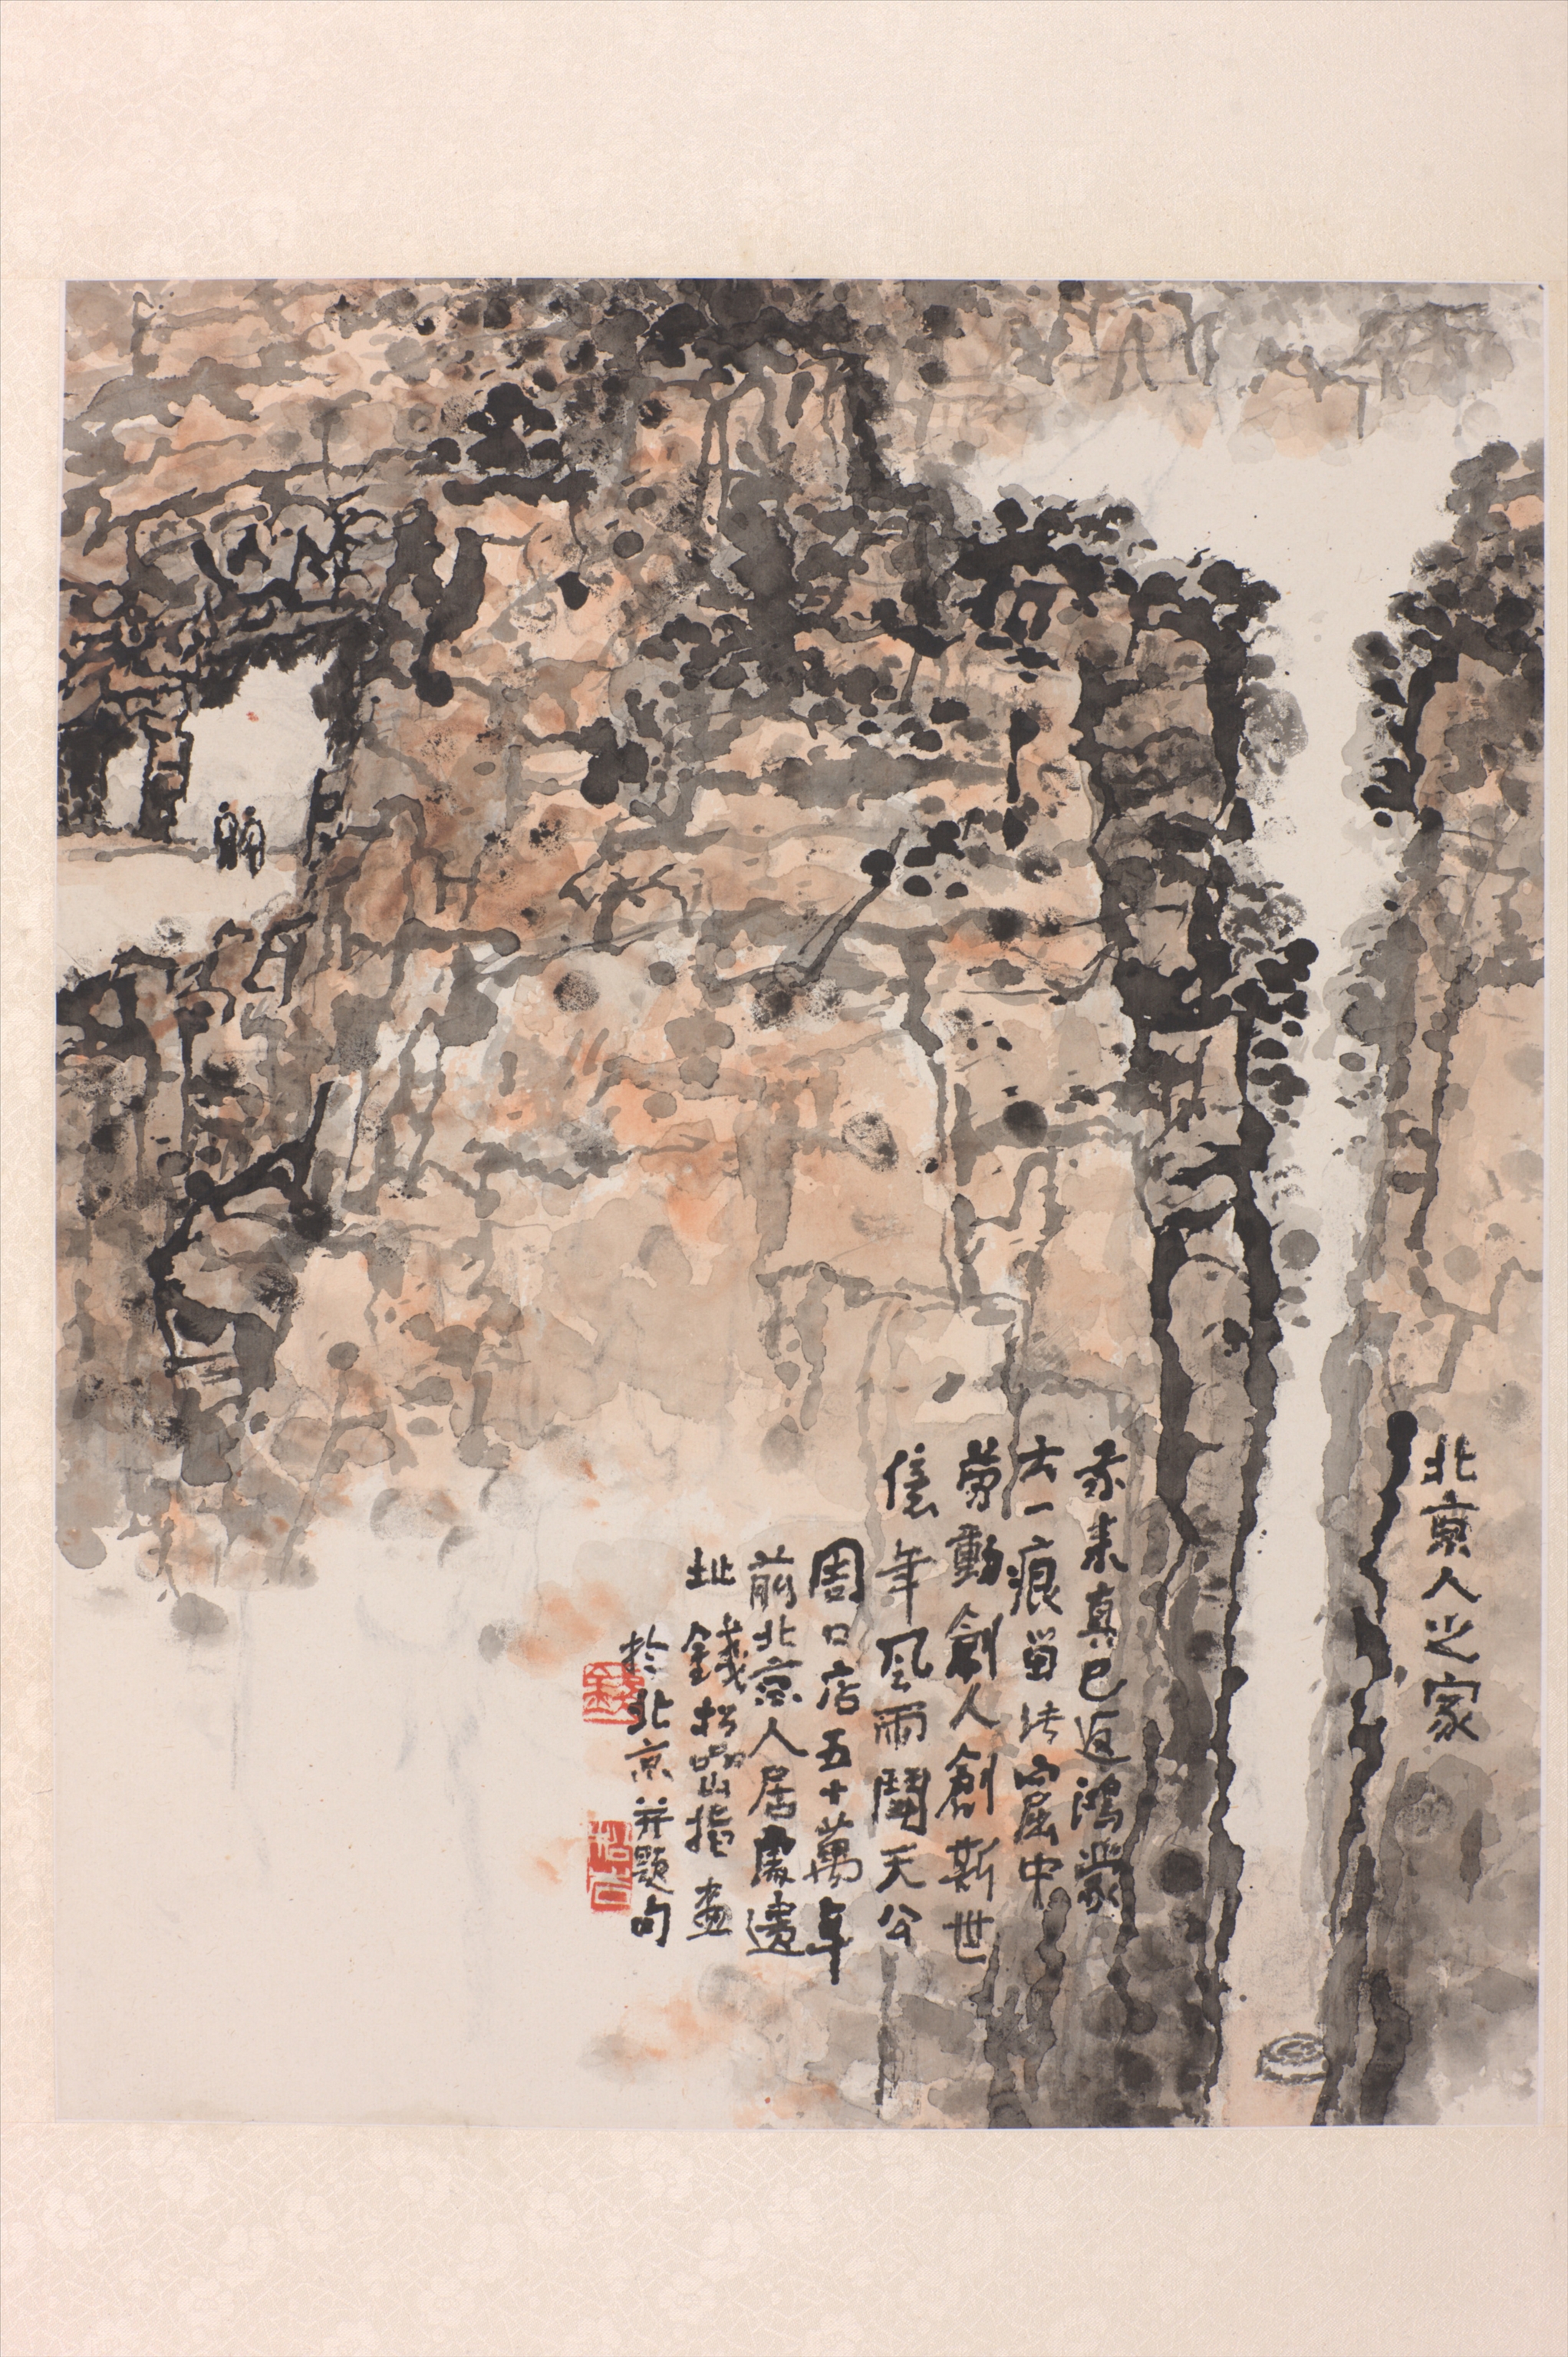 北京人之家
來真已返鴻蒙
一痕留窟中
勞動創人創斯世
億年风雨鬪天公
周口店五十萬年
前北京人居處遺
址 錢松嵒指畫
於北京并題句
錢
松嵒